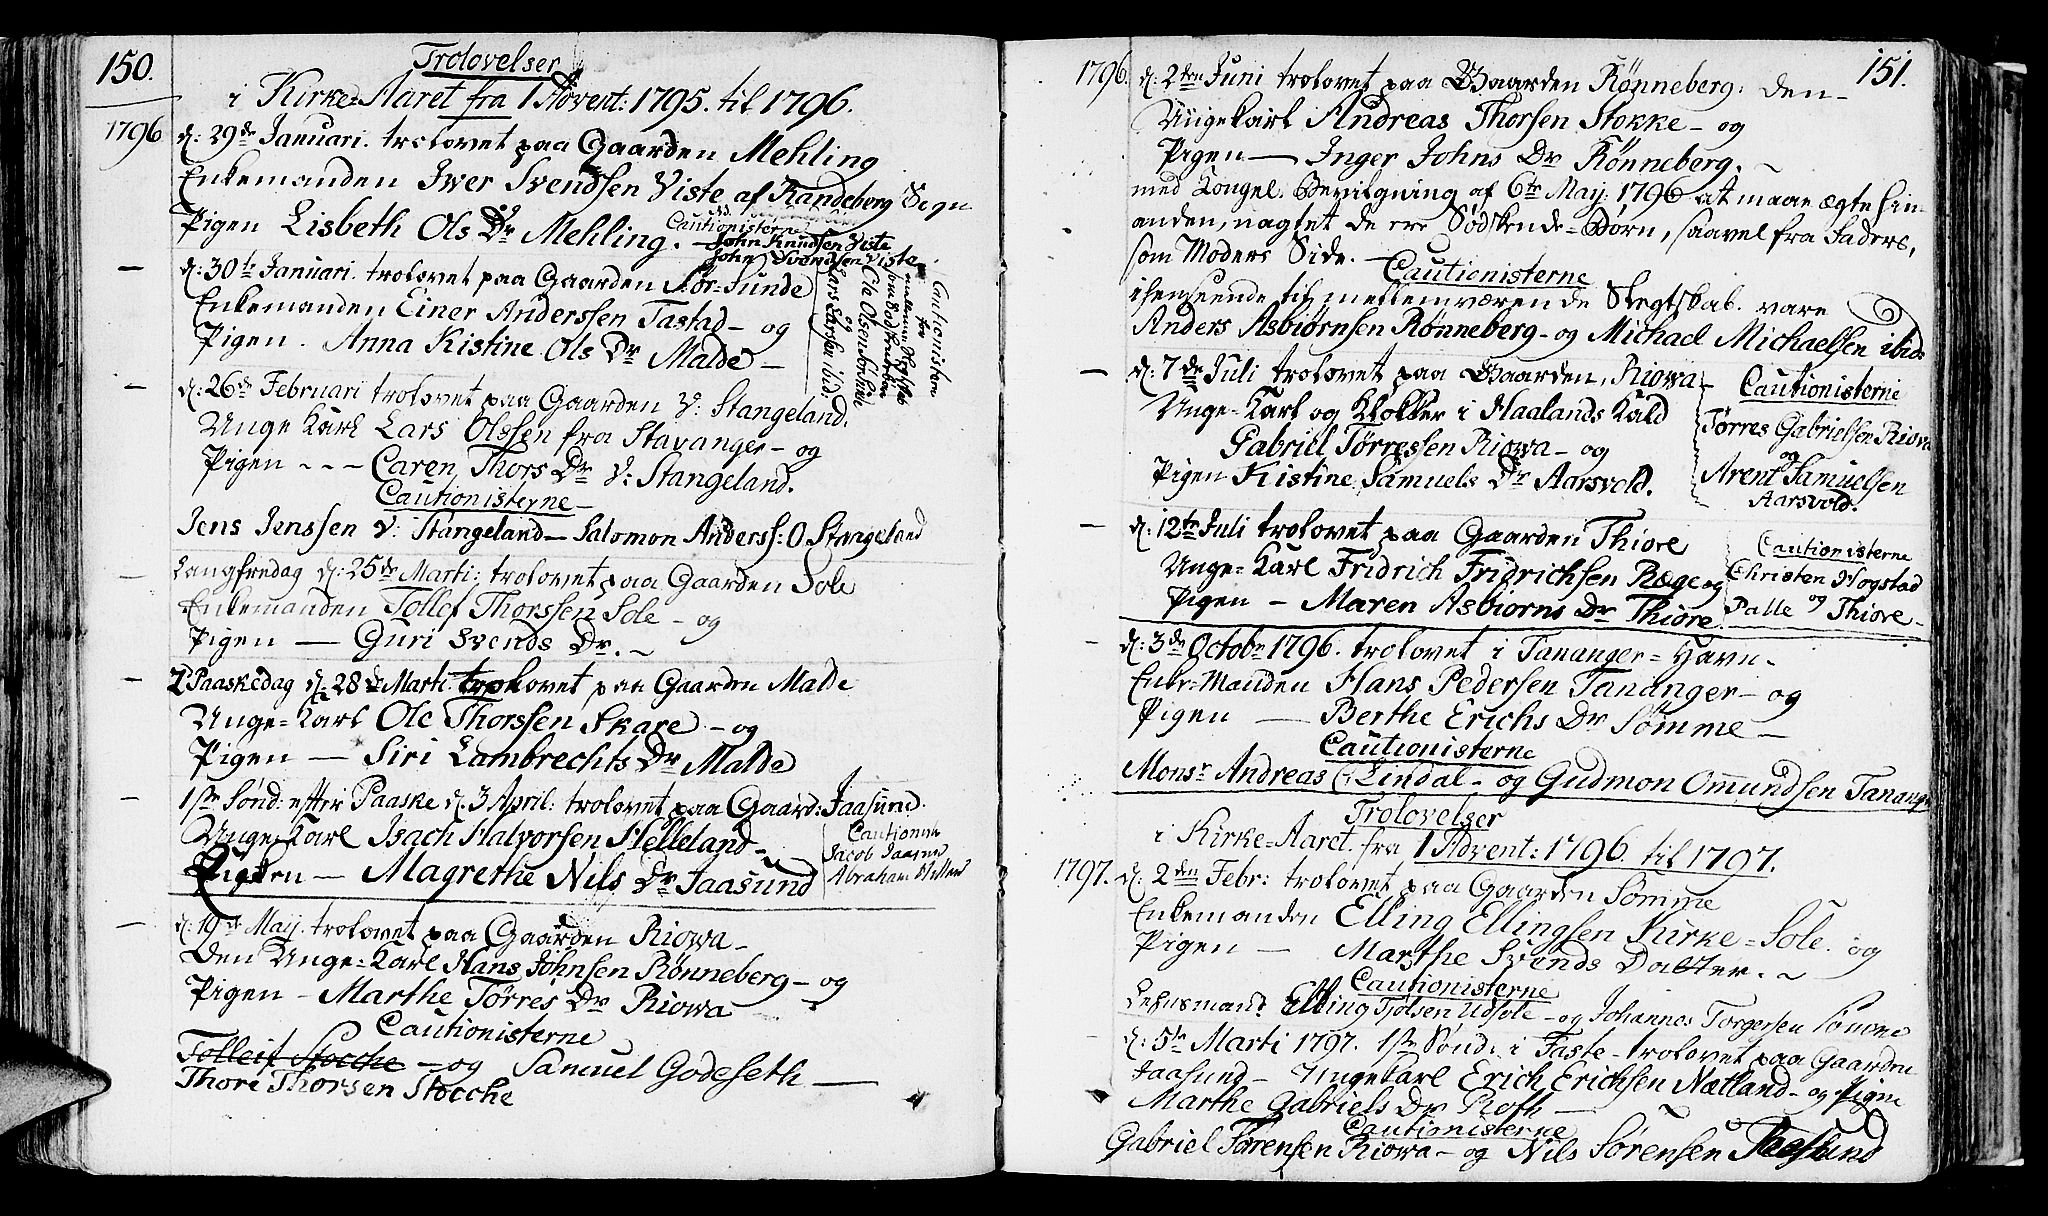 150.
Trolovelser
i Kirke-Aaret fra 1 Advent: 1795. til 1796.
1796
d: 29de Januari. trolovet paa Gaarden Mehling
Enkemanden Iwer Svendsen Viste af Randeberg Sogn
Pigen Lisbeth Ols Dr Mehling.
Cautionisterne
John Knudsen Viste
John Svendsen Viste
d: 30te Januari. trolovet paa Gaarden Sør-Sunde
Enkemanden Einer Anderssen Tastad - og
Pigen. Anna Kistine Ols Dr Malde -
Cautionisten
for
Ole Olsen Sør Sunde
og
Lars Larssen ibid:
d: 26de Februari trolovet paa Gaarden V: Stangeland.
Unge Karl Lars Olssen fra Stavanger - og
Pigen - - - Caren Thors Dr V: Stangeland.
Cautionisterne -
Jens Jenssen V: Stangeland - Salomon Anderss: O. Stangeland
Langfredag d: 25de Marti: trolovet paa Gaarden Sole
Enkemanden Tollef Thorssen Sole - og
Pigen - Guri Svends Dr. ~
2 Paaskedag d: 28de Marti. trolovet paa Gaarden Malde
Unge-Karl Ole Thorssen Skare - og
Pigen - Siri Lambrechts Dr Malde
1ste Sønd: efter Paaske d: 3 April: trolovet paa Gaard: Jaasund.
Unge-Karl Isach Halvorsen Helleland -
Pigen - Magrethe Nils Dr Jaasund
Cautionist
Jacob Jaasund
Abraham
d: 19de Maij. trolovet paa Gaarden Riowa -
Den Unge-Karl Hans Johnsen Rønneberg - og
Pigen - Marthe Tørres Dr Riowa
Cautionisterne
Tolleif Stocche - og Samuel Godeseth -
Thore Thorsen Stocche
151.
1796.
d: 2den Juni trolovet paa Gaarden Rønneberg. den
Ungekarl Andreas Thorsen Stokke - og
Pigen - Inger Johns Dr Rønneberg. ~
med Kongel. Bevilgning af 6te Maij 1796 at maae ægte hin-
anden, uagtet de ere Sødskende-Børn, saavel fra Faders,
som Moders Side. -
Cautionisterne
i henseende til mellemværende Slegtskab. vare
Anders Asbiørnsen Rønneberg - og Michael Michaelsen ibid:
d: 7de Juli trolovet paa Gaarden, Riowa
Unge-Karl og Klokker i Haalands Kald
Gabriel Tørressen Riowa - og
Pigen Kistine Samuels Dr Aarsvold.
Cautionisterne
Tørres Gabrielsen Riowa
og
Arent Samuelsen
Aarsvold.
d: 12te Juli trolovet paa Gaarden Thiore
Unge-Karl Fridrich Fridrichsen Ræge og
Pigen - Maren Asbiørns Dr Thiore
Cautionisterne
Christen Hogstad
og
Palle Thiore -
d: 3de Octobr 1796. trolovet i Tananger-Havn -
Enke-Manden Hans Pedersen Tananger - og
Pigen - Berthe Erichs Dr Sømme -
Cautionisterne
Monsr Andreas Lindal - og Gudmon Omundsen Tananger
Trolovelser
i Kirke-Aaret fra 1 Advent: 1796. til 1797.
1797.
d: 2den Febr: trolovet paa Gaarden Sømme
Enkemanden Elling Ellingsen Kirke-Sole. og
Pigen - Marthe Svends Datter. ~
Cautionisterne
Lehnsmand Elling Tjølsen Udsole - og Johannes Torgersen Sømme
d: 5te Marti 1797. 1ste Sønd: i Faste - trolovet paa Gaarden
Jaasund - Ungekarl Erich Erichsen Nætland - og Pigen
Marthe Gabriels Dr Roth -
Cautionisterne
Gabriel Sørensen Riowa - og Nils Sørensen Jaasund